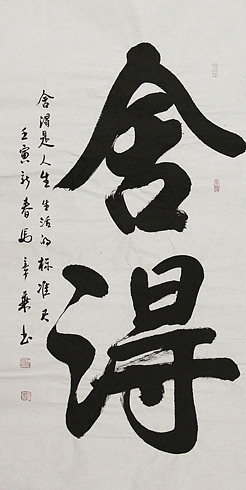 舍得
舍得是人生生活的标准
壬寅新春马